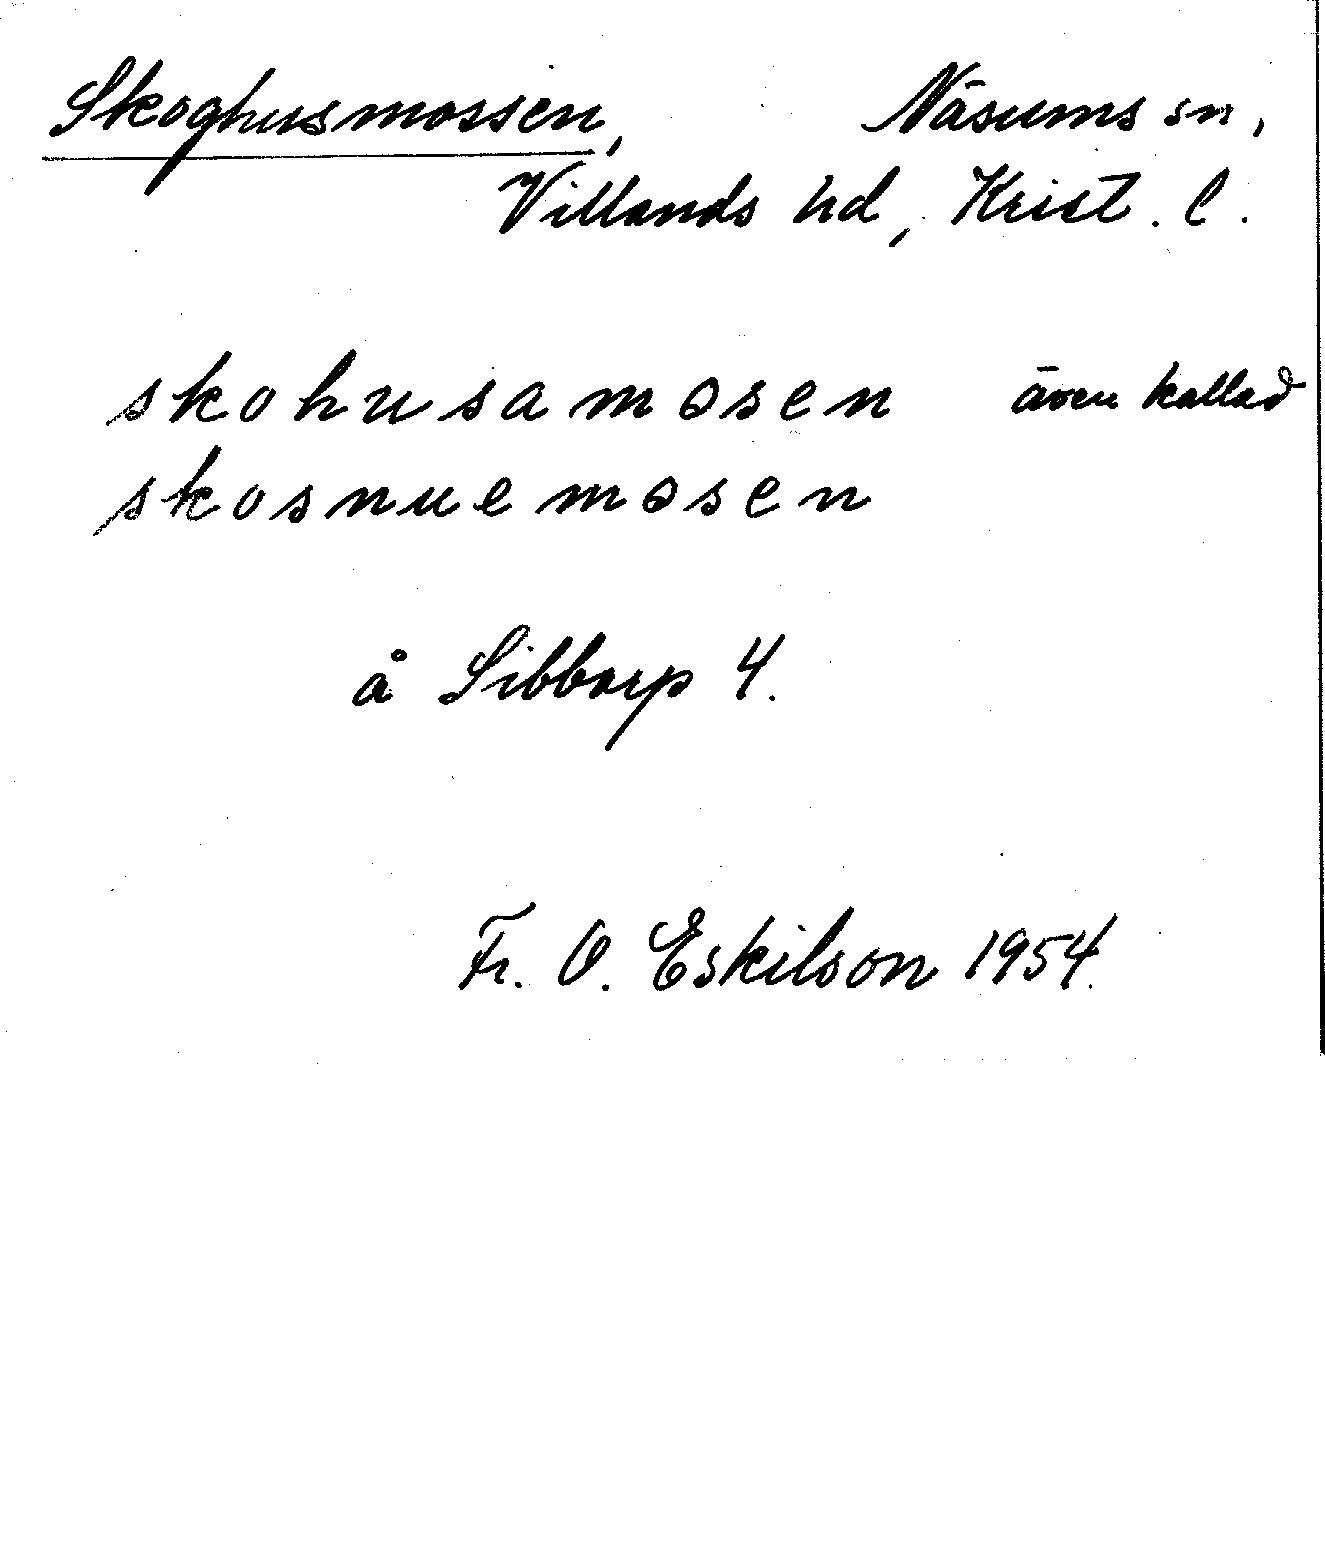 Skoghusmossen, Näsums sn,
Villands hd, Krist. l.
skohusamosen även kallad
skosnuemosen
å Sibbarp 4.
Fr. O. Eskilson 1954.